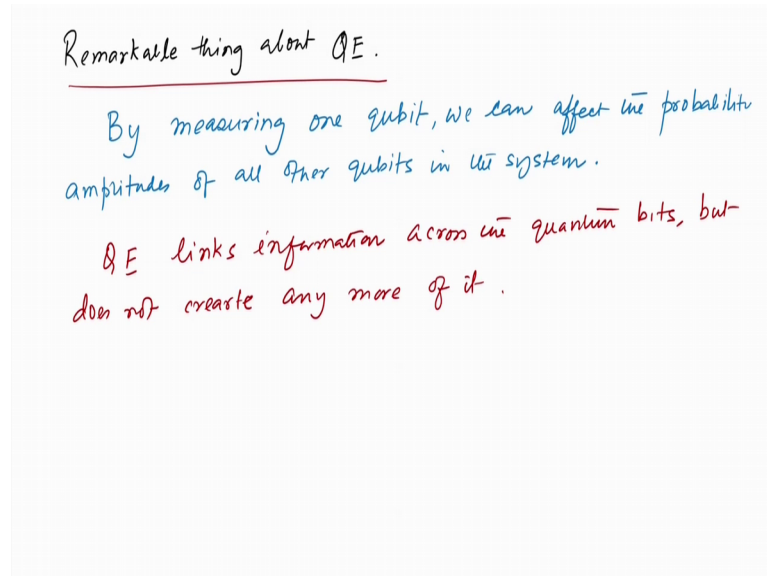 Remarkable thing about QE.
By measuring one qubit, we can affect the probability
amplitudes of all other qubits in the system.
QE links information across the quantum bits, but
does not crearte any more of it.